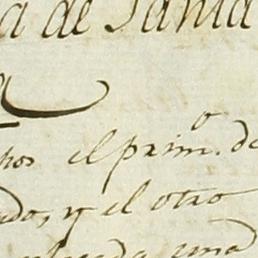 a de Santa
hos el primo. de
ados, y el otro
una